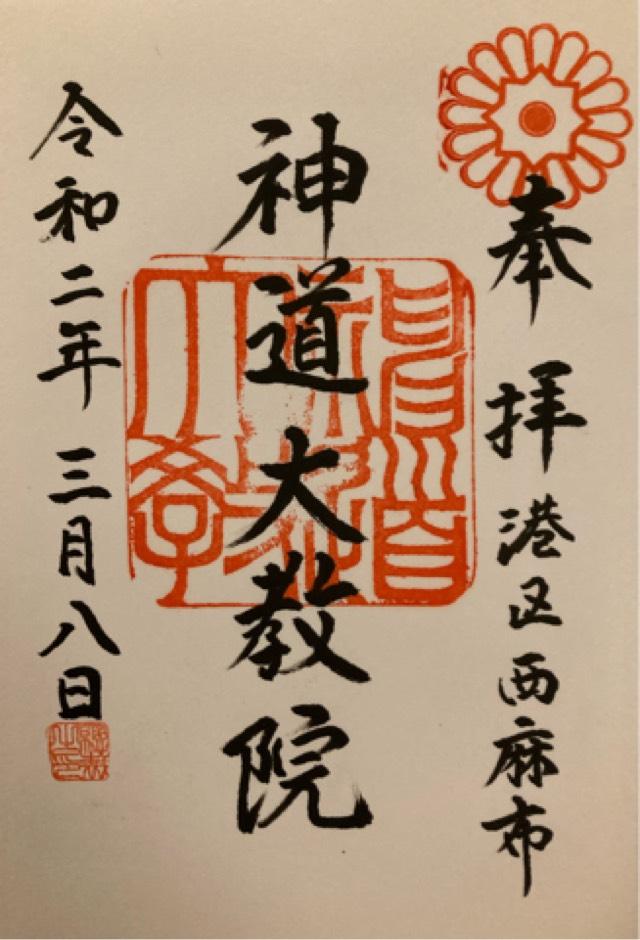 奉拝 港区西麻布
神道大教院
令和二年三月八日